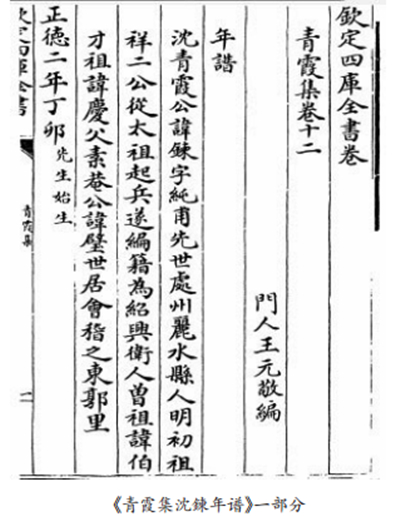 欽定四庫全書卷
青霞集卷十二
門人王元敬編
年譜
沈青霞公諱鍊字純甫先世處州麗水縣人明初祖
祥二公從太祖起兵遂編籍為紹興衛人曽祖諱伯
才祖諱慶父素菴公諱璧世居會稽之東郭里
正德二年丁卯先生始生
欽定四庫全書
青霞集
一
《青霞集沈鍊年谱》一部分